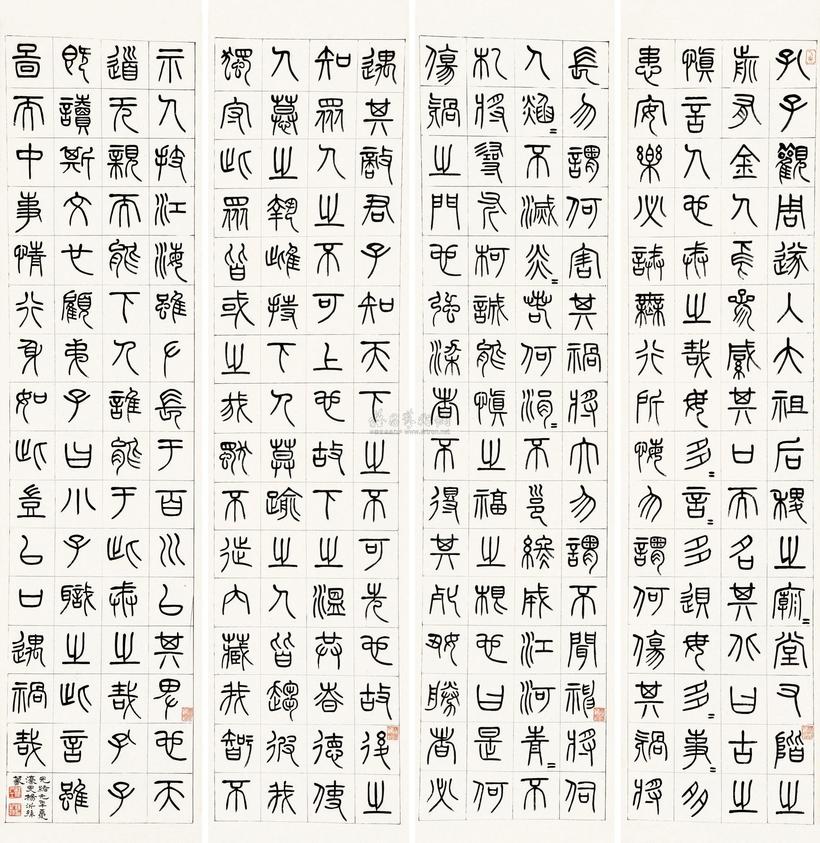 孔子觀周遂入大祖后稷之廟=堂右階之
前有金人焉參緘其口而名其北曰古之
慎言人也戒之哉毋多=言=多敗毋多=事=多
患安樂必誡無行所悔勿謂何傷其禍將
長勿謂何害其禍將大勿謂不聞神將伺
人焰=不滅炎=若何涓=不邕終成江河青=不
札將尋斧柯誠能慎之福之根也曰是何
傷禍之門也強梁者不得其死好勝者必
遇其敵君子知天下之不可先也故後之
知眾人之不可上也故下之溫共春德使
人慕之執雌持下人莫踰之人皆趨彼我
獨守此眾皆或之我獨不徙內藏我智不
示人技江海雖左長于百川以其卑也天
道无親而能下人誰能于此戒之哉孔子
既讀斯文也顧弟子曰小子識之此言雖
啚而中事情行身如此豈以口遇禍哉
光緒七年夏
濠叟楊沂孫
篆